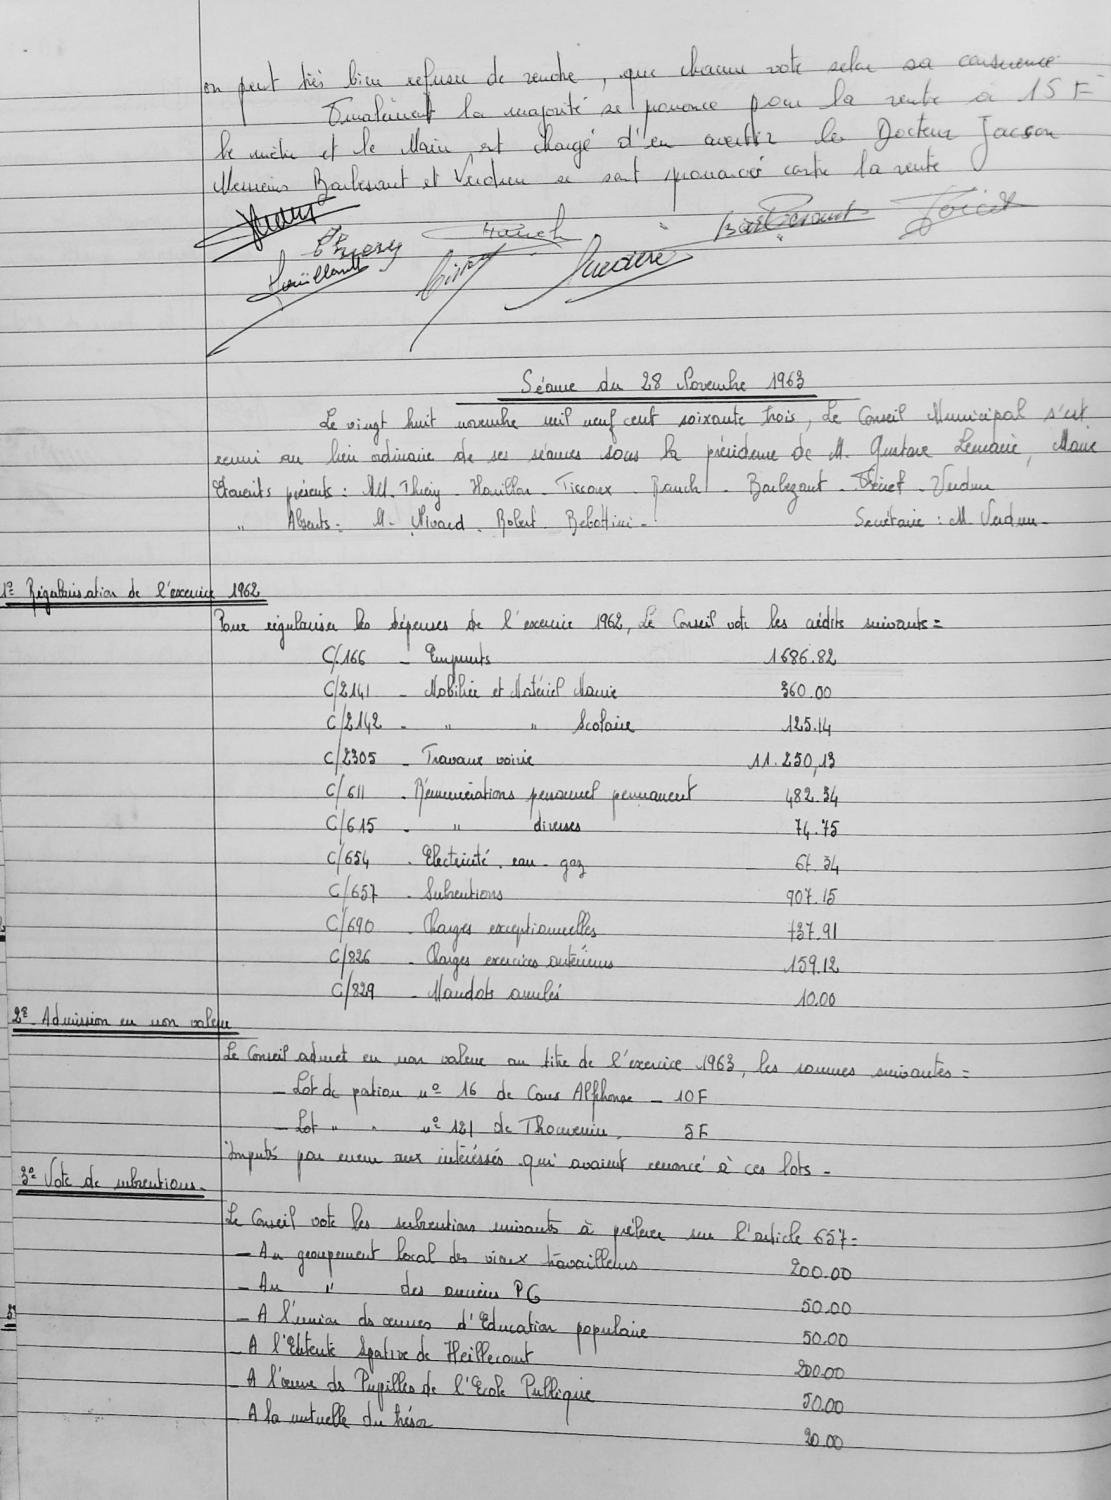 on peut très bien refuser de vendre, que chacun vote selon sa conscience
Finalement la majorité se prononce pour la vente à 15 F
le mètre et le Maire est chargé d'en avertir le Docteur Jacson
Messieurs Barbezant et Verdun se sont prononcés contre la vente
Thiery
Rauch
Barbezant
Houillon
Lemaire
Séance du 28 Novembre 1963
Le vingt huit novembre mil neuf cent soixante trois, Le Conseil Municipal s'est
reuni au lieu ordinaire de ses séances sous la présidence de M. Gustave Lemaire, Maire
Etaient présents : MM. Thiery - Houillon - Tissoux - Rauch - Barbezant - - Verdun
" Absents - M. Nivard. Robert. Bebottini - Secrétaire : M. Verdun -
1º Régularisation de l'exercice 1962
Pour régulariser les dépenses de l'exercice 1962, Le Conseil vote les crédits suivants =
C/166 - Emprunts 1686.82
C/2141 - Mobilier et Matériel Mairie 360.00
C/2142 - " " Scolaire 125.14
C/2305 - Travaux voirie 11.250,13
C/611 - Rémunérations personnel permanent 482.34
C/615 - " diverses 74.75
C/654 - Electricité - eau - gaz 67.34
C/657 - Subventions 907.15
C/690 - Charges exceptionnelles 737.91
C/826 - Charges exercices antérieurs 159.12
C/829 - Mandats annulés 10.00
2º Admission en non valeur
Le Conseil admet en non valeur au titre de l'exercice 1963, les sommes suivantes =
- Lot de pation nº 16 de Cous Alphonse - 10 F
- Lot " " nº 121 de Thouvenin, 5 F
Imputés par erreur aux intéréssés qui avaient renoncé à ces lots -
3º Vote de subventions -
Le Conseil vote les subventions suivantes à prélever sur l'article 657 =
- Au groupement local des vieux travailleurs 200.00
- Au " des anciens PG 50.00
- A l'union des œuvres d'Education populaire 50.00
- A l'Entente Spative de Heillecourt 200.00
- A l'œuvre des Pupilles de l'Ecole Publique 50.00
- A la mutuelle du trésor 20.00